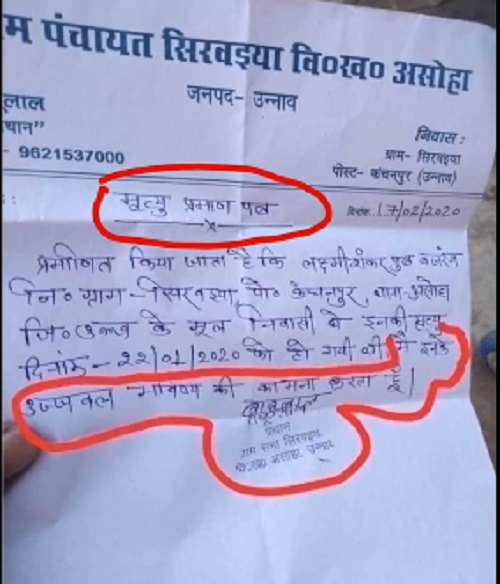 म पंचायत सिरवइया वि०ख० असोहा
जनपद- उन्नाव
लाल
धान”
- 9621537000
निवास :
ग्राम- सिरवइया
पोस्ट- कंचनपुर (उन्नाव)
मृत्यु प्रमाण पत्र
दिनांक 17/02/2020
प्रमाणित किया जाता है कि लक्ष्मीशंकर पुत्र बजरंग
नि० ग्राम- सिरवइया, पो० कंचनपुर, थाना-असोहा
जि० उन्नाव के मूल निवासी थे इनकी मृत्यु
दिनांक- 22/01/2020 को हो गयी थी मै इनके
उज्जवल भविष्य की कामना करता हूँ।
प्रधान
ग्राम सभा सिरवइया
वि.ख. असोहा उन्नाव